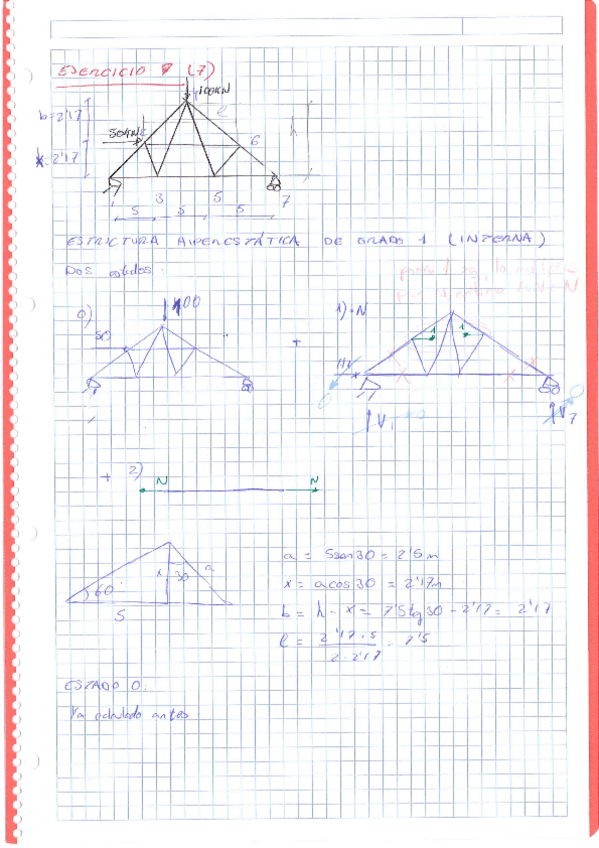 EJERCICIO 7 (7)
100KN
b=2'17
50KN
l
h
6
x=2'17
1
3
5
7
5
5
5
ESTRUCTURA HIPERESTÁTICA DE GRADO 1 (INTERNA)
Dos estados:
0)
100
50
+
1)·N
1
1
H1
0
V1
0
V7
+ 2)
N
N
60°
x
30
a
5
a = 5sen30 = 2'5m
x = acos30 = 2'17m
b = h - x = 7'5tg30 - 2'17 = 2'17
l = 2'17·5 / 2·2'17 = 7'5
ESTADO 0:
Ya calculado antes.